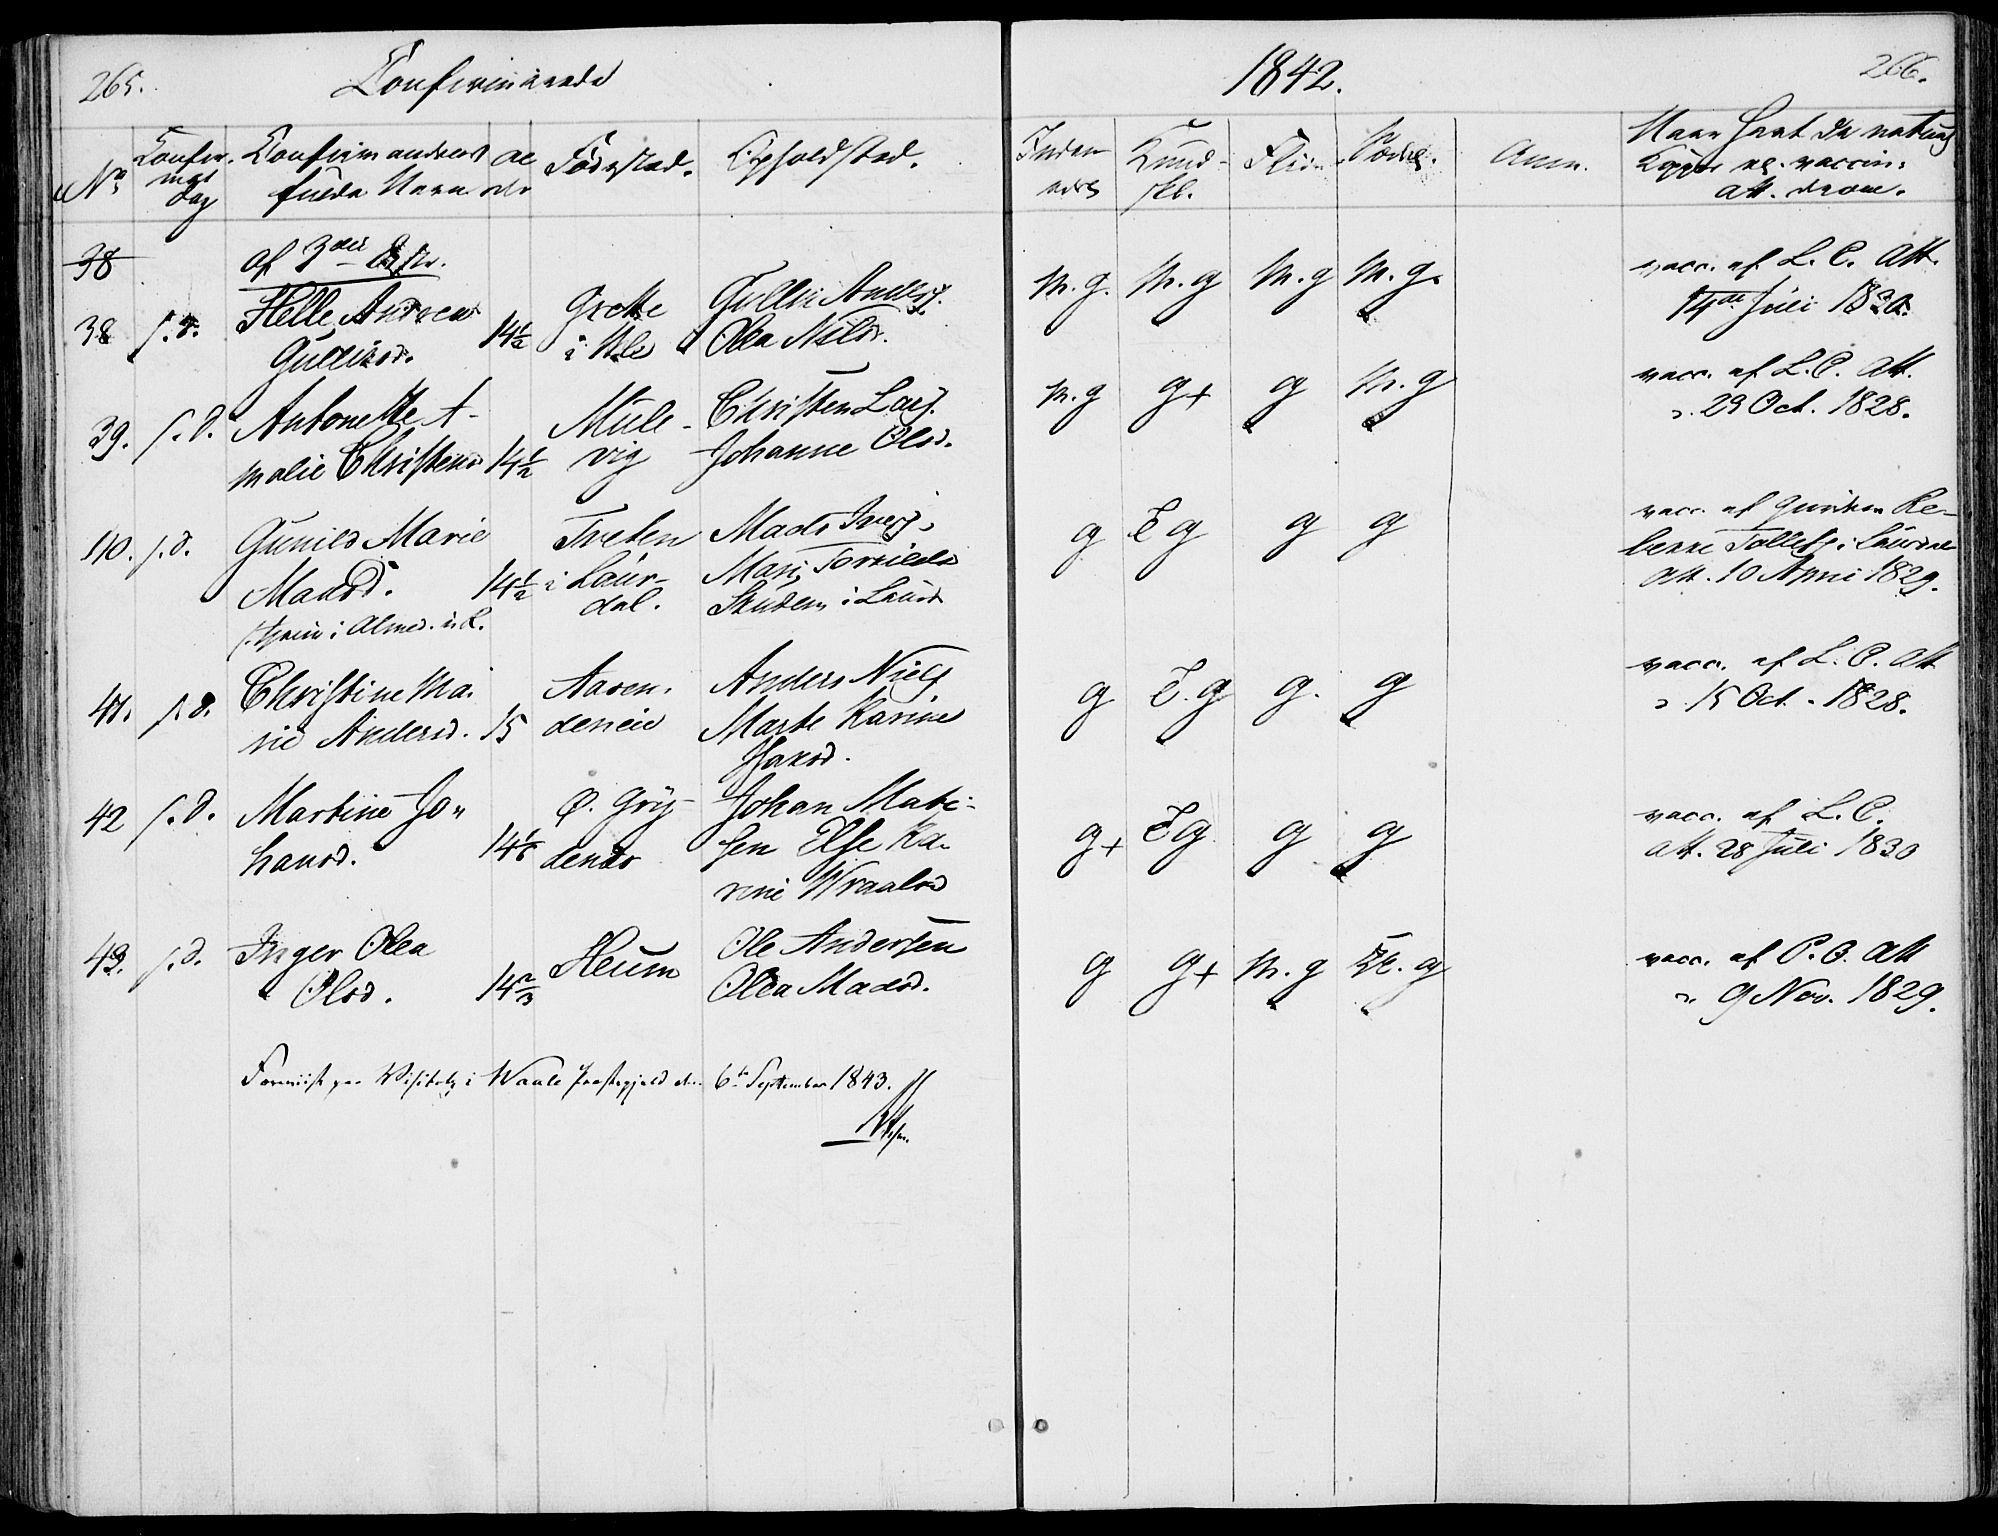 265.
Confirmerede
1842.
266.
No
Confir.
mat
dag
Confirmandens
fulde Navn
Al
der
Födested.
Opholdsted.
Inden
ad
Kund-
skb.
Flid
Anm.
Naar havt de naturl
Kopper el. vaccin:
Att. derom.
38
af 3die
38
s. d.
Helle Andrea
Gullixsd.
14½
Grette
i Hle
Gullix Anders.
Olea Nilsd.
M. g.
M. g
M. g
M. g.
vacc. af L. C. Att.
14de Juli 1830.
39.
s. d.
Antonette A-
malie Christensd
14½
Mule-
vig
Christen Lars.
Johanne Olsd.
M. g
g+
g
M. g
vacc. af L. C. Att.
d. 29 Oct. 1828.
40.
s. d.
Gunild Marie
Madsd.
14½
Tveten
i Laur-
dal.
Mads Ivers.
Mari Torkilds
i Laurd
g
T g
g
g
vacc. af Re-
bekke Tollefs. i Laurdal
Att. 10 April 1829.
41.
s. d.
Christine Ma-
rie Andersd.
15
Aaren-
deneie
Anders Niels.
Marte Karine
g
T. g
g.
g
vacc. af L. C. Att
d. 15 Oct. 1828.
42
s. d.
Martine Jo-
hansd.
Johan Mati-
sen Else Ka-
rine Wraalsd
g+
T g
g
g
vacc. af L. C.
Att. 28 Juli 1830
43.
s. d.
Inger Olea
Olsd.
14⅔
Heum
Ole Andersen
Olea Madsd.
g
g+
M. g
M. g
vacc. af P. B. Att
d. 9 Nov. 1829.
Foreviist paa Visitats i Waale Præstegjeld den 6te September 1843.